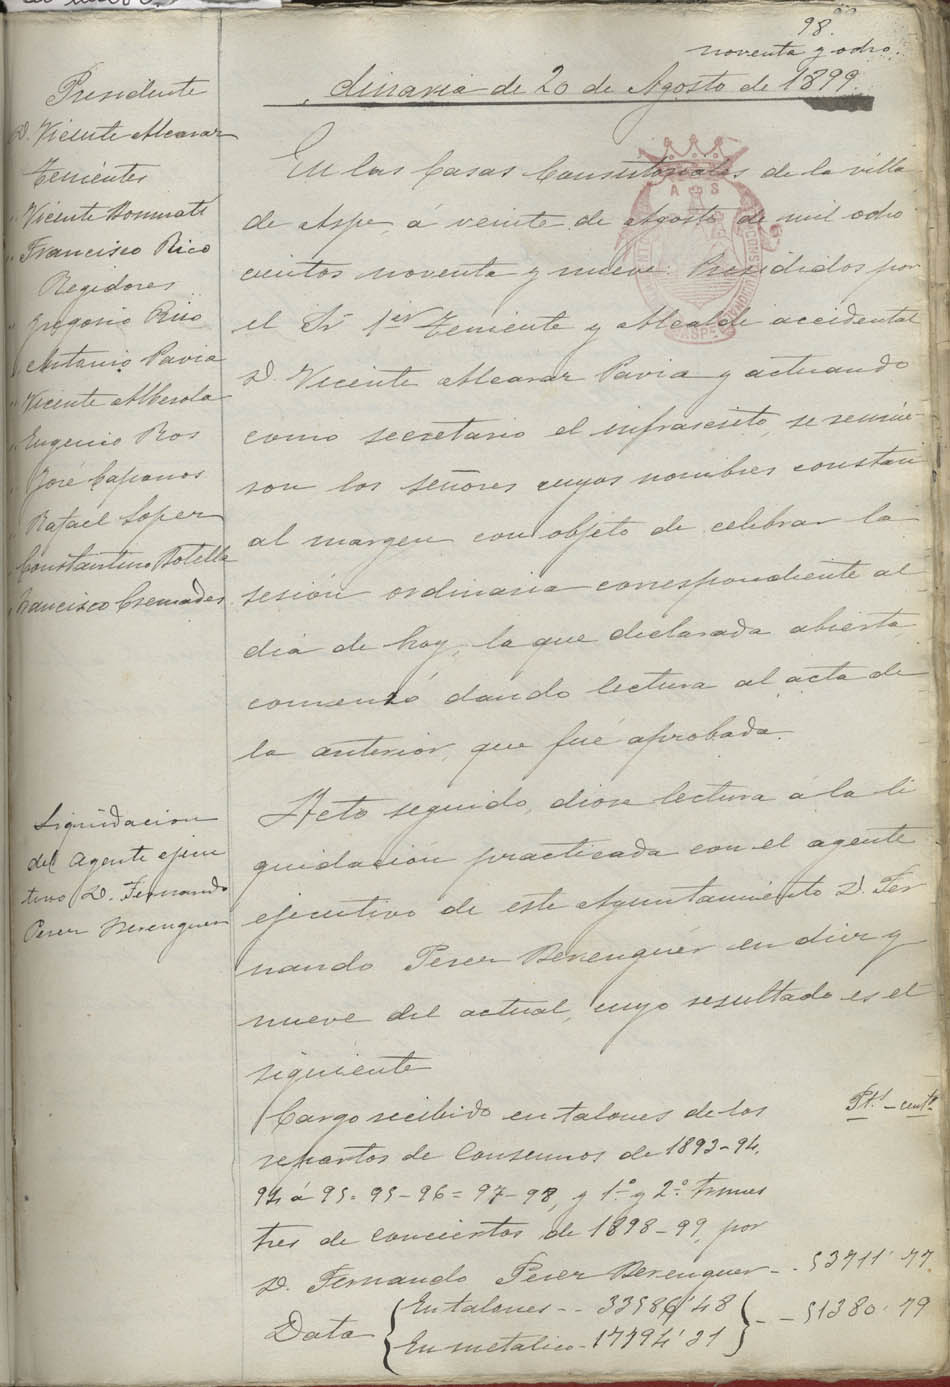 98.
noventa y ocho.
dinaria de 20 de Agosto de 1899.
Presidente
D. Vicente Alcaraz
Tenientes
" Vicente Bonmati
" Francisco Rico
Regidores
" Gregorio Rico
" Antonio Pavia
" Vicente Alberola
" Eugenio Ros
" José Caparros
" Rafael Soper
" Constantino Botella
" Francisco Cremades
En las Casas Consistoriales de la villa
de Aspe, á veinte de Agosto de mil ocho
cientos noventa y nueve. Presididos por
el Sr. 1er Teniente y Alcalde accidental
D. Vicente Alcaraz Pavia y actuando
como secretario el infrascrito, se reunie-
ron los señores cuyos nombres constan
al margen con objeto de celebrar la
sesión ordinaria correspondiente al
dia de hoy, la que declarada abierta,
comenzó dando lectura al acta de
la anterior, que fué aprobada.
Liquidacion
del Agente ejecu
tivo D. Fernando
Perez Berenguer
Acto seguido, diose lectura á la li
quidación practicada con el agente
ejecutivo de este Ayuntamiento D. Fer
nando Perez Berenguer en diez y
nueve del actual, cuyo resultado es el
siguiente
Pts. - cents.
Cargo recibido en talones de los
repartos de Consumos de 1893-94,
94 á 95 = 95-96 = 97-98, y 1.º y 2.º trimes
tres de conciertos de 1898-99, por
D. Fernando Perez Berenguer - . 53711'77.
Data { En talones - - 33586'48 } - - 51380'79
En metalico - 17794'31